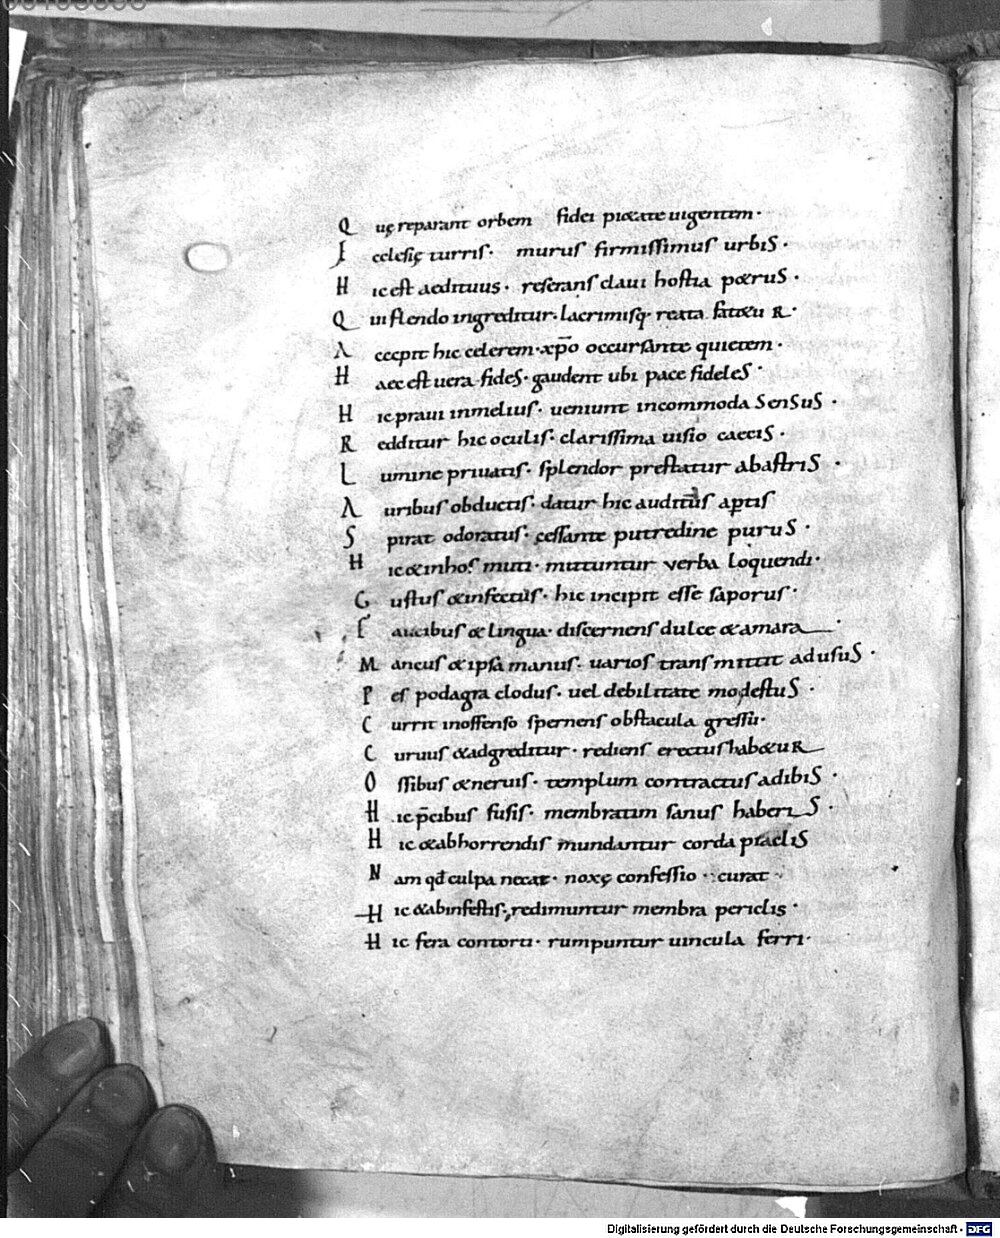 Q uę reparant orbem fidei pietate uigentem·
E cclesię turris· murus firmissimus urbis·
H ic est aedituus· reserans claui hostia petrus·
Q ui flendo ingreditur· lacrimisq· reata fatetur·
A ccepit hic celerem· xp̄o occursante quietem·
H aec est uera fides· gaudent ubi pace fideles·
H ic praui inmelius· ueniunt incommoda sensus·
R edditur hic oculis· clarissima uisio caecis·
L umine priuatis· splendor prestatur abastris·
A uribus obductis· datur hic auditus aptis
S pirat odoratus· cessante putredine purus·
H ic & inhos muti· mittuntur verba loquendi·
G ustus & infectus· hic incipit esse saporus·
F aucibus & lingua· discernens dulce & amara·
M ancus & ipsa manus· uarios transmittit adusus·
P es podagra clodus· uel debilitate modestus·
C urrit inoffenso spernens obstacula gressu·
C uruus & adgreditur· rediens erectus habetur
O ssibus & neruis· templum contractus adibis·
H ic p̄cibus fusis· membratim sanus haberis·
H ic & abhorrendis mundantur corda piaclis
N am qđ culpa necat· noxę confessio curat
H ic & abinfestis· redimuntur membra periclis·
H ic fera contorti· rumpuntur uincula ferri·
Digitalisierung gefördert durch die Deutsche Forschungsgemeinschaft - DFG